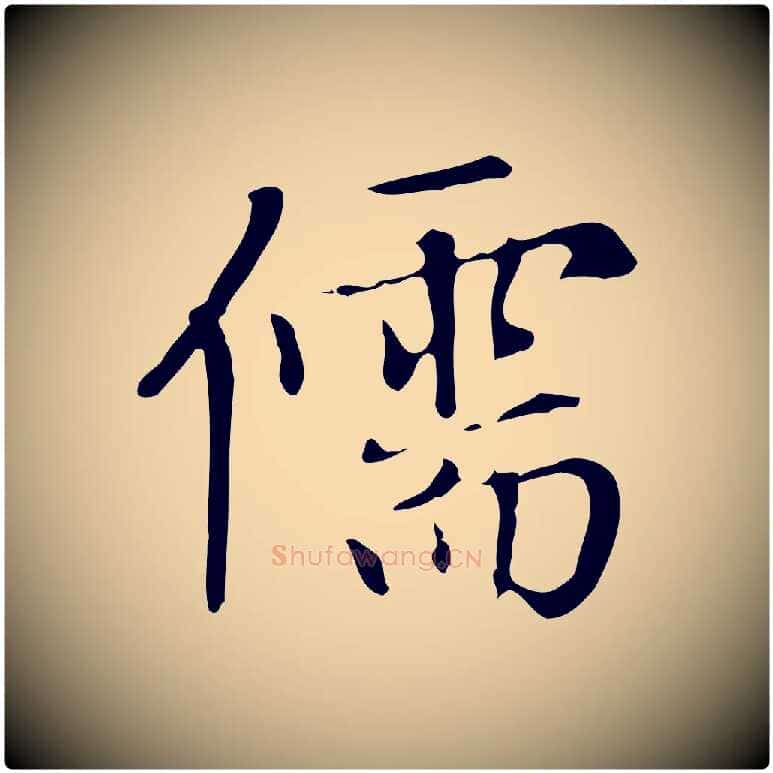 儒
Shufawang.CN